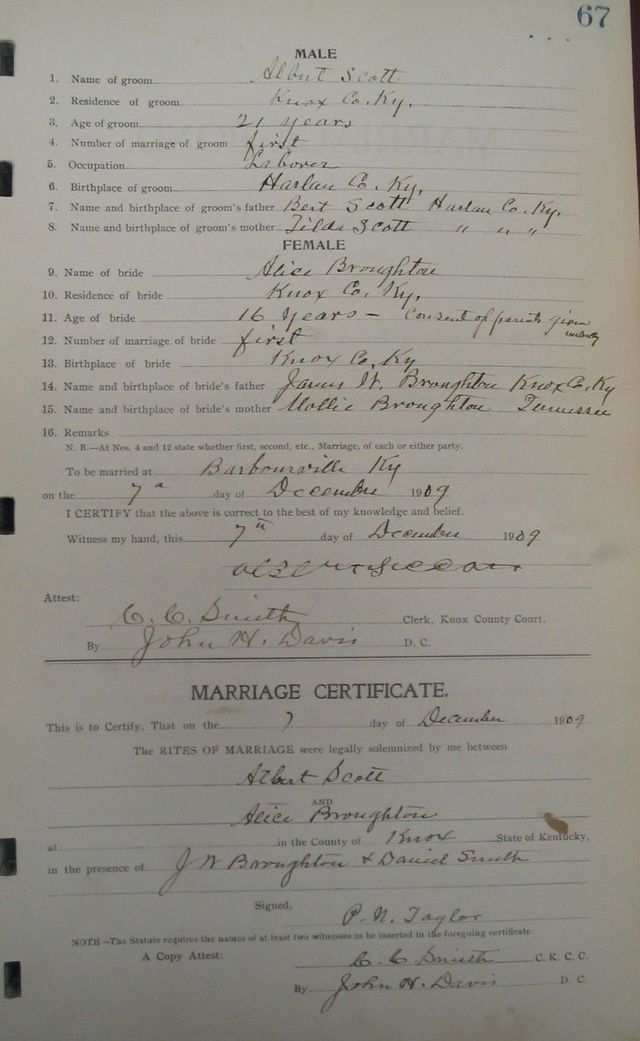 67
MALE
1. Name of groom Albert Scott
2. Residence of groom Knox Co. Ky.
3. Age of groom 21 years
4. Number of marriage of groom first
5. Occupation Laborer
6. Birthplace of groom Harlan Co. Ky.
7. Name and birthplace of groom's father Bert Scott Harlan Co. Ky.
8. Name and birthplace of groom's mother Tilda Scott " " "
FEMALE
9. Name of bride Alice Broughton
10. Residence of bride Knox Co. Ky.
11. Age of bride 16 years – Consent of parents given
12. Number of marriage of bride first
13. Birthplace of bride Knox Co. Ky
14. Name and birthplace of bride's father James W. Broughton Knox Co. Ky
15. Name and birthplace of bride's mother Mollie Broughton Tennessee
16. Remarks
N. B.—At Nos. 4 and 12 state whether first, second, etc., Marriage, of each or either party.
To be married at Barbourville Ky
on the 7 day of December 1909
I CERTIFY that the above is correct to the best of my knowledge and belief.
Witness my hand, this 7th day of December 1909
Attest:
C. C. Smith Clerk, Knox County Court.
By John H. Davis D. C.
MARRIAGE CERTIFICATE.
This is to Certify, That on the 7 day of December 1909
The RITES OF MARRIAGE were legally solemnized by me between
Albert Scott
AND
Alice Broughton
at in the County of Knox State of Kentucky,
in the presence of J W Broughton & Daniel Smith
Signed,
P. N. Taylor
NOTE—The Statute requires the names of at least two witnesses to be inserted in the foregoing certificate.
A Copy Attest: C. C. Smith C. K. C. C.
By John H. Davis D. C.